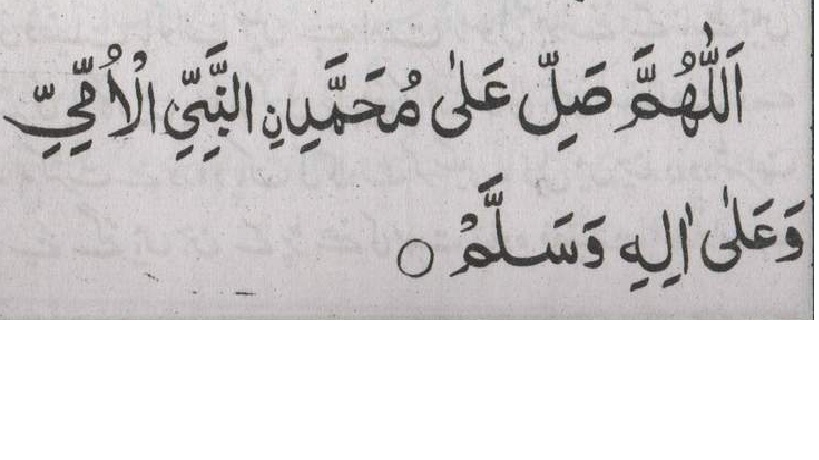 اَللّٰهُمَّ صَلِّ عَلٰى مُحَمَّدِ نِ النَّبِيِّ الْاُمِّيِّ
وَعَلٰى اٰلِهٖ وَسَلَّمْ ○